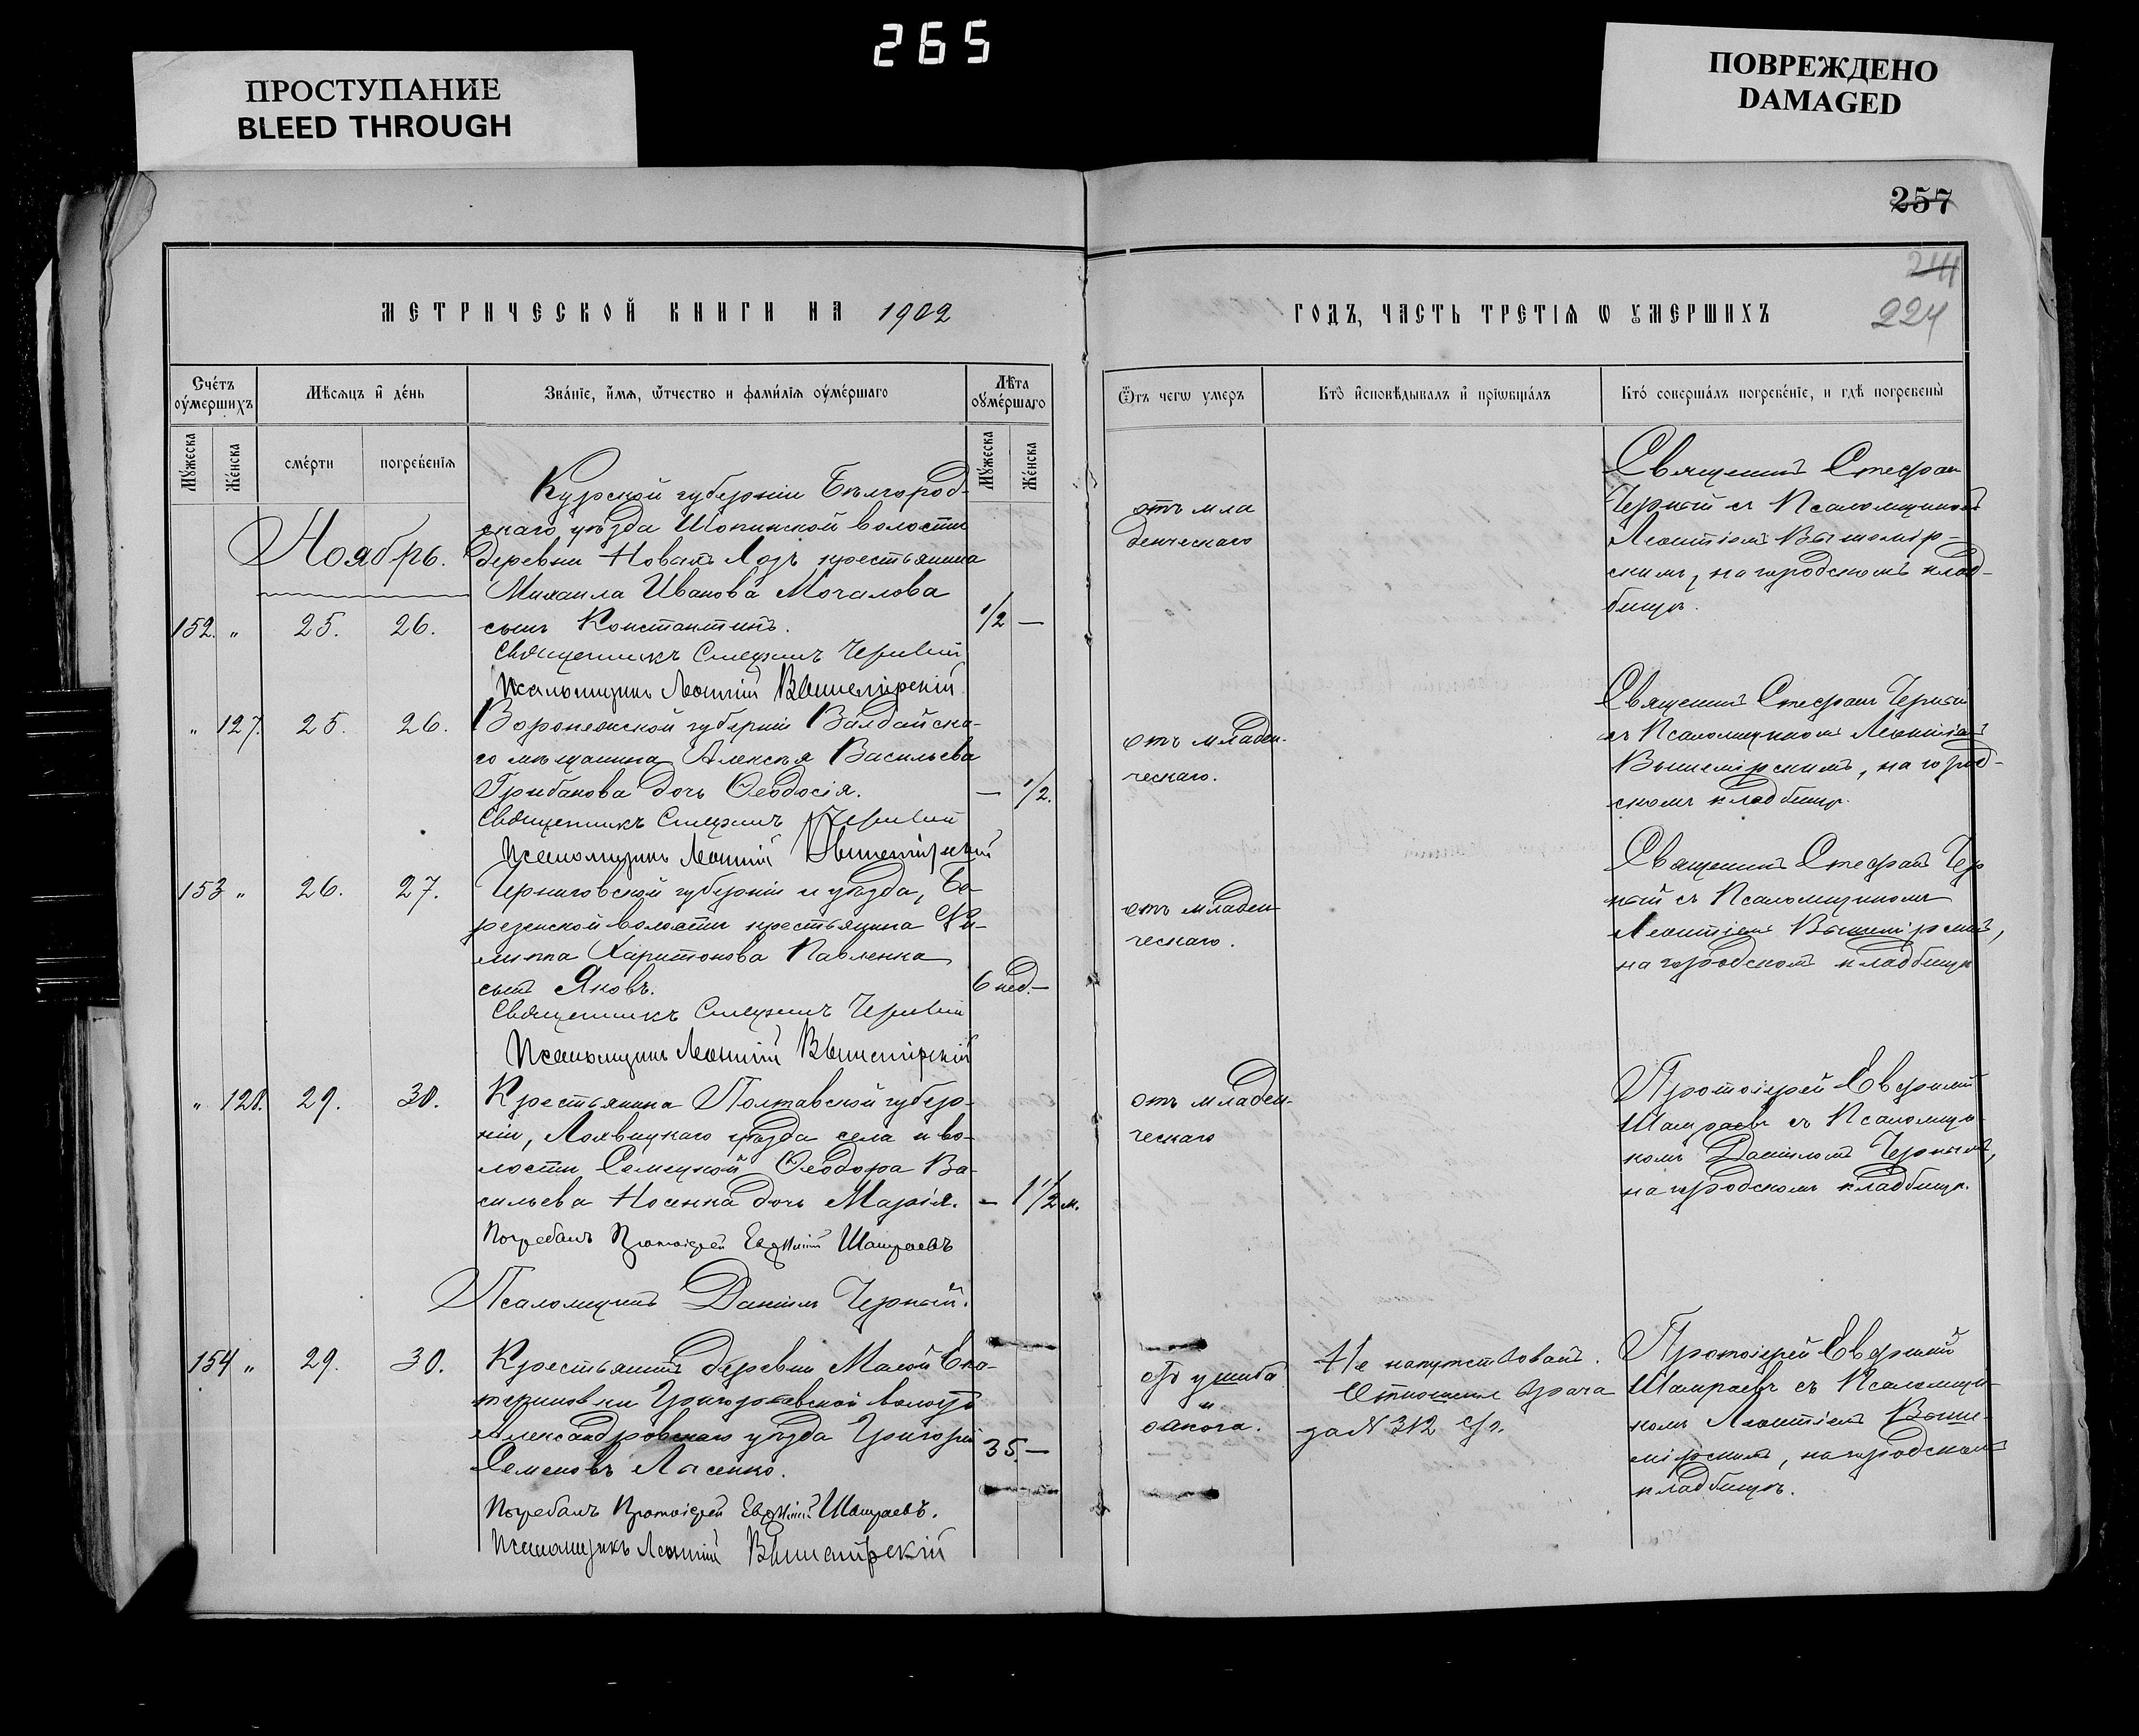 265
ПРОСТУПАНИЕ
BLEED THROUGH
ПОВРЕЖДЕНО
DAMAGED
257
241
224
МЕТРИЧЕСКОЙ КНИГИ НА 1902
ГОДЪ, ЧАСТЬ ТРЕТІЯ Ѡ УМЕРШИХЪ
Счетъ умершихъ
Мѣсяцъ и день
Званіе, имя, отчество и фамилія умершаго
Лѣта умершаго
Отъ чегѡ умеръ
Кто исповѣдывалъ и пріобщалъ
Кто совершалъ погребеніе, и гдѣ погребены
Мужеска
Женска
смерти
погребенія
Мужеска
Женска
Ноябрь.
Курской губерніи Бѣлгород-
скаго уѣзда Шопинской волости
деревни Новая Лозъ крестьянина
Михаила Иванова Мочалова
152. " 25. 26. сынъ Константинъ. 1/2 —
отъ мла
денческаго
Священникъ Стефан
Черный съ Псаломщикомъ
Леонтіемъ Вышемір-
скимъ, на городскомъ клад-
бищѣ.
Священникъ Стефанъ Черный
Псаломщикъ Леонтій Вышемірскій
" 127. 25. 26. Воронежской губерніи Валдайска-
го мѣщанина Алексѣя Васильева
Грибанова дочь Ѳеодосія. — 1/2.
отъ младен-
ческаго.
Священникъ Стефанъ Черный
съ Псаломщикомъ Леонтіемъ
Вышемірскимъ, на город-
скомъ кладбищѣ.
Священникъ Стефанъ Черный
Псаломщикъ Леонтій Вышемірскій
153 " 26. 27. Черниговской губерніи и уѣзда, Бе-
резенской волости крестьянина Фи-
липпа Харитонова Павленка
сынъ Яковъ. 6 нед. —
отъ младен-
ческаго.
Священникъ Стефанъ Чер
ный съ Псаломщикомъ
Леонтіемъ Вышемірскимъ,
на городскомъ кладбищѣ
Священникъ Стефанъ Черный
Псаломщикъ Леонтій Вышемірскій
" 128. 29. 30. Крестьянина Полтавской губер-
ніи, Лохвицкаго уѣзда села и во-
лости Ѳеодора Ва-
сильева Носенка дочь Марія. — 1 1/2 м.
отъ младен-
ческаго
Протоіерей Евфимій
Шамраевъ съ Псаломщи-
комъ Даніиломъ Чернымъ,
на городскомъ кладбищѣ.
Погребалъ Протоіерей Евфимій Шамраевъ
Псаломщикъ Даніилъ Черный.
154 " 29. 30. Крестьянинъ деревни Малой Ека-
териновки Григорьевской волости
Александровскаго уѣзда Григорій
Семеновъ Лысенко. 35. —
отъ ушиба
и
ожога.
Не напутствованъ.
Отношеніе врача
за N 312
Протоіерей Евфимій
Шамраевъ съ Псаломщи-
комъ Леонтіемъ Выше-
мірскимъ, на городскомъ
кладбищѣ.
Погребалъ Протоіерей Евфимій Шамраевъ.
Псаломщикъ Леонтій Вышемірскій